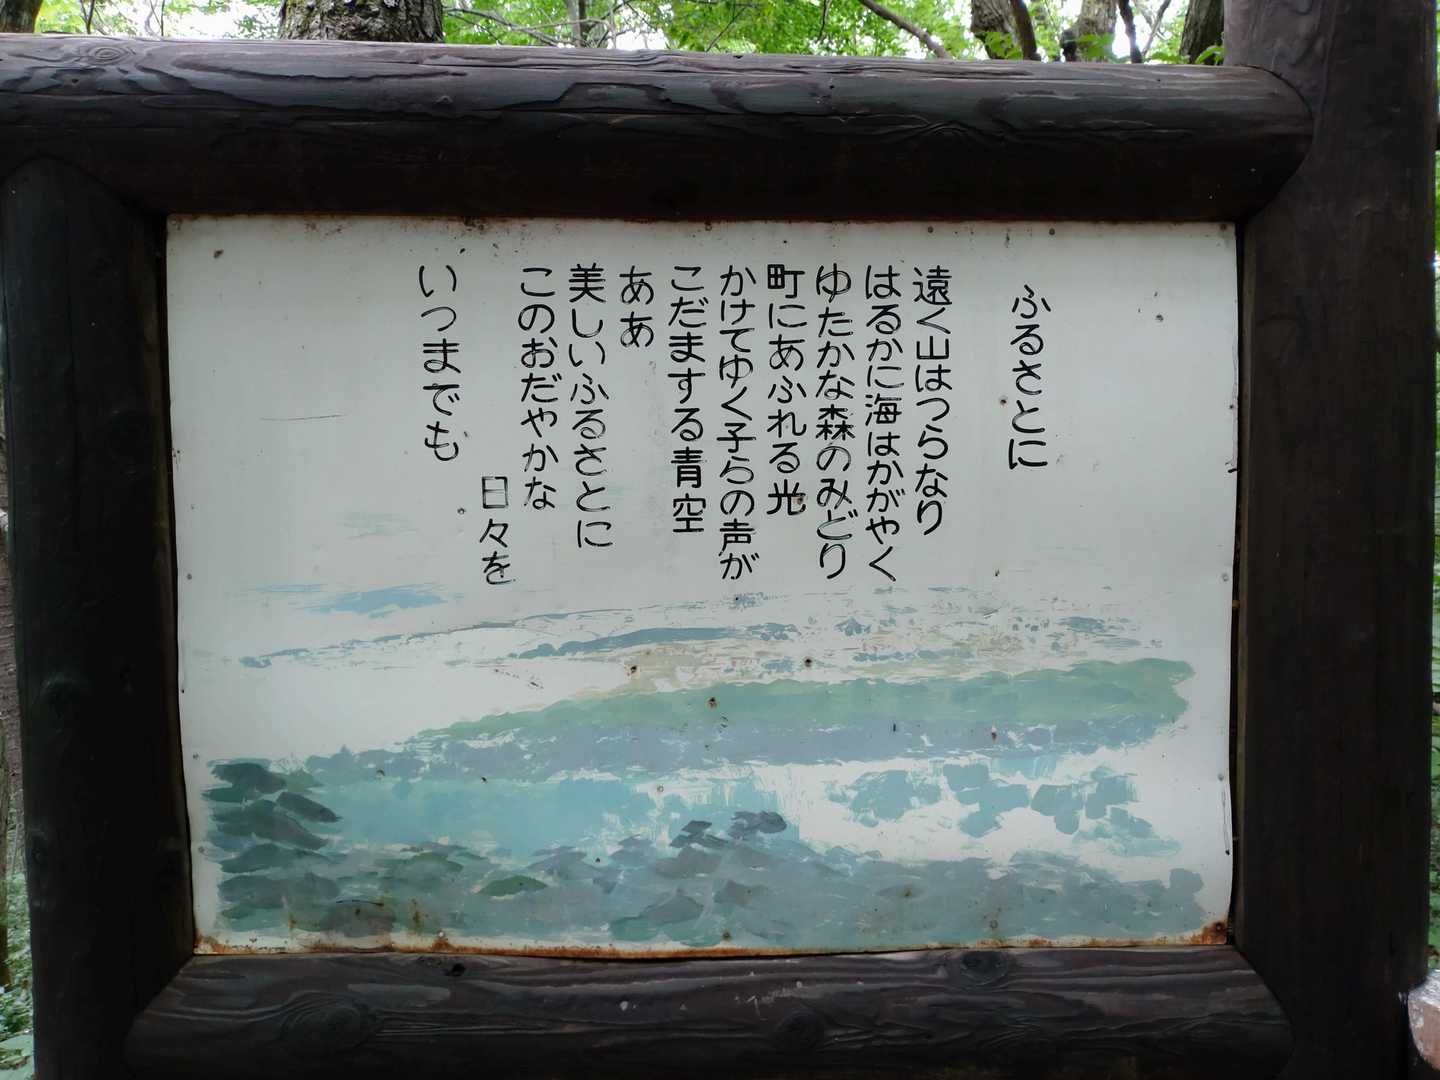 ふるさとに
遠く山はつらなり
はるかに海はかがやく
ゆたかな森のみどり
町にあふれる光
かけてゆく子らの声が
こだまする青空
ああ
美しいふるさとに
このおだやかな
日々を
いつまでも